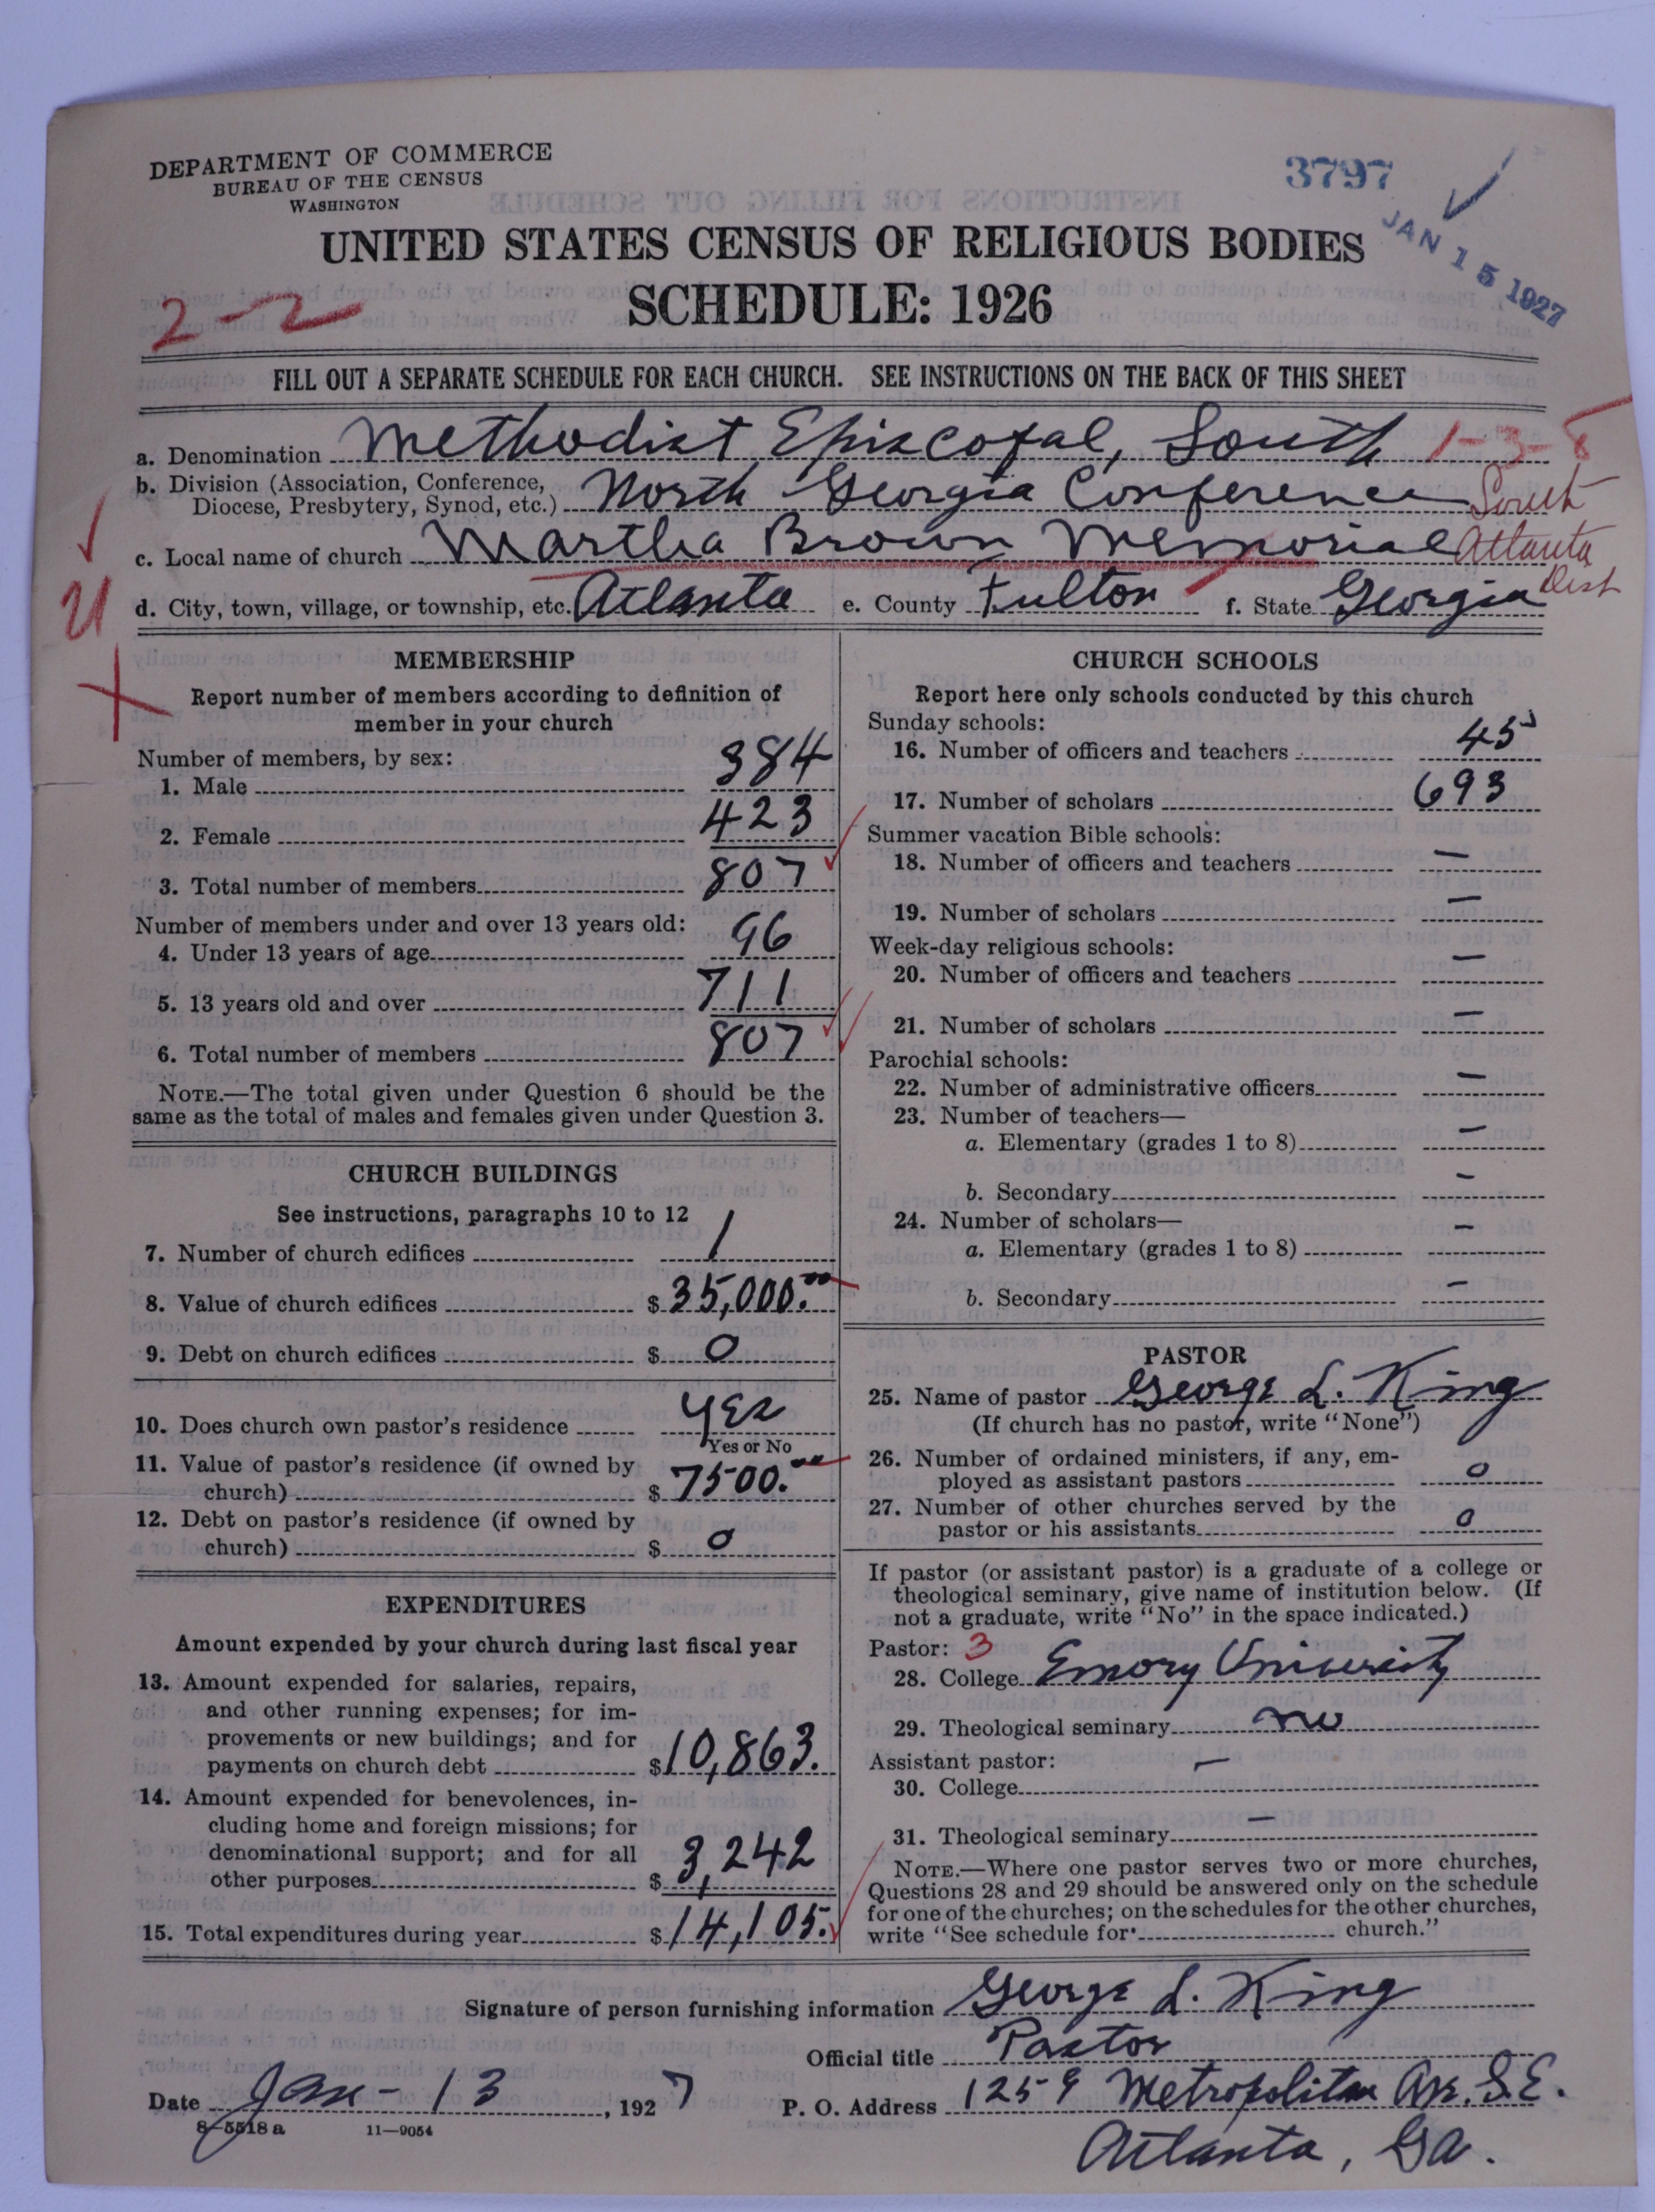 DEPARTMENT OF COMMERCE
BUREAU OF THE CENSUS
WASHINGTON
3797
JAN 15 1927
UNITED STATES CENSUS OF RELIGIOUS BODIES
SCHEDULE: 1926
2-2
FILL OUT A SEPARATE SCHEDULE FOR EACH CHURCH. SEE INSTRUCTIONS ON THE BACK OF THIS SHEET
a. Denomination Methodist Episcopal, South 1-3-8
b. Division (Association, Conference, Diocese, Presbytery, Synod, etc.) North Georgia Conference South
c. Local name of church Martha Brown Memorial Atlanta
Dist
d. City, town, village, or township, etc. Atlanta e. County Fulton f. State Georgia
MEMBERSHIP
Report number of members according to definition of
member in your church
Number of members, by sex:
1. Male 384
2. Female 423
3. Total number of members 807
Number of members under and over 13 years old:
4. Under 13 years of age 96
5. 13 years old and over 711
6. Total number of members 807
NOTE.—The total given under Question 6 should be the
same as the total of males and females given under Question 3.
CHURCH BUILDINGS
See instructions, paragraphs 10 to 12
7. Number of church edifices 1
8. Value of church edifices $ 35,000.00
9. Debt on church edifices $ 0
10. Does church own pastor's residence Yes
Yes or No
11. Value of pastor's residence (if owned by
church) $ 7500.00
12. Debt on pastor's residence (if owned by
church) $ 0
EXPENDITURES
Amount expended by your church during last fiscal year
13. Amount expended for salaries, repairs,
and other running expenses; for im-
provements or new buildings; and for
payments on church debt $ 10,863.
14. Amount expended for benevolences, in-
cluding home and foreign missions; for
denominational support; and for all
other purposes $ 3,242
15. Total expenditures during year $ 14,105.
CHURCH SCHOOLS
Report here only schools conducted by this church
Sunday schools:
16. Number of officers and teachers 45
17. Number of scholars 693
Summer vacation Bible schools:
18. Number of officers and teachers —
19. Number of scholars —
Week-day religious schools:
20. Number of officers and teachers —
21. Number of scholars —
Parochial schools:
22. Number of administrative officers —
23. Number of teachers—
a. Elementary (grades 1 to 8) —
b. Secondary —
24. Number of scholars—
a. Elementary (grades 1 to 8) —
b. Secondary —
PASTOR
25. Name of pastor George L. King
(If church has no pastor, write "None")
26. Number of ordained ministers, if any, em-
ployed as assistant pastors 0
27. Number of other churches served by the
pastor or his assistants 0
If pastor (or assistant pastor) is a graduate of a college or
theological seminary, give name of institution below. (If
not a graduate, write "No" in the space indicated.)
Pastor: 3
28. College Emory University
29. Theological seminary no
Assistant pastor:
30. College —
31. Theological seminary —
NOTE.—Where one pastor serves two or more churches,
Questions 28 and 29 should be answered only on the schedule
for one of the churches; on the schedules for the other churches,
write "See schedule for church."
Signature of person furnishing information George L. King
Official title Pastor
Date Jan- 13, 1927 P. O. Address 1259 Metropolitan Ave. S.E.
8-5518a 11—9054
Atlanta, Ga.